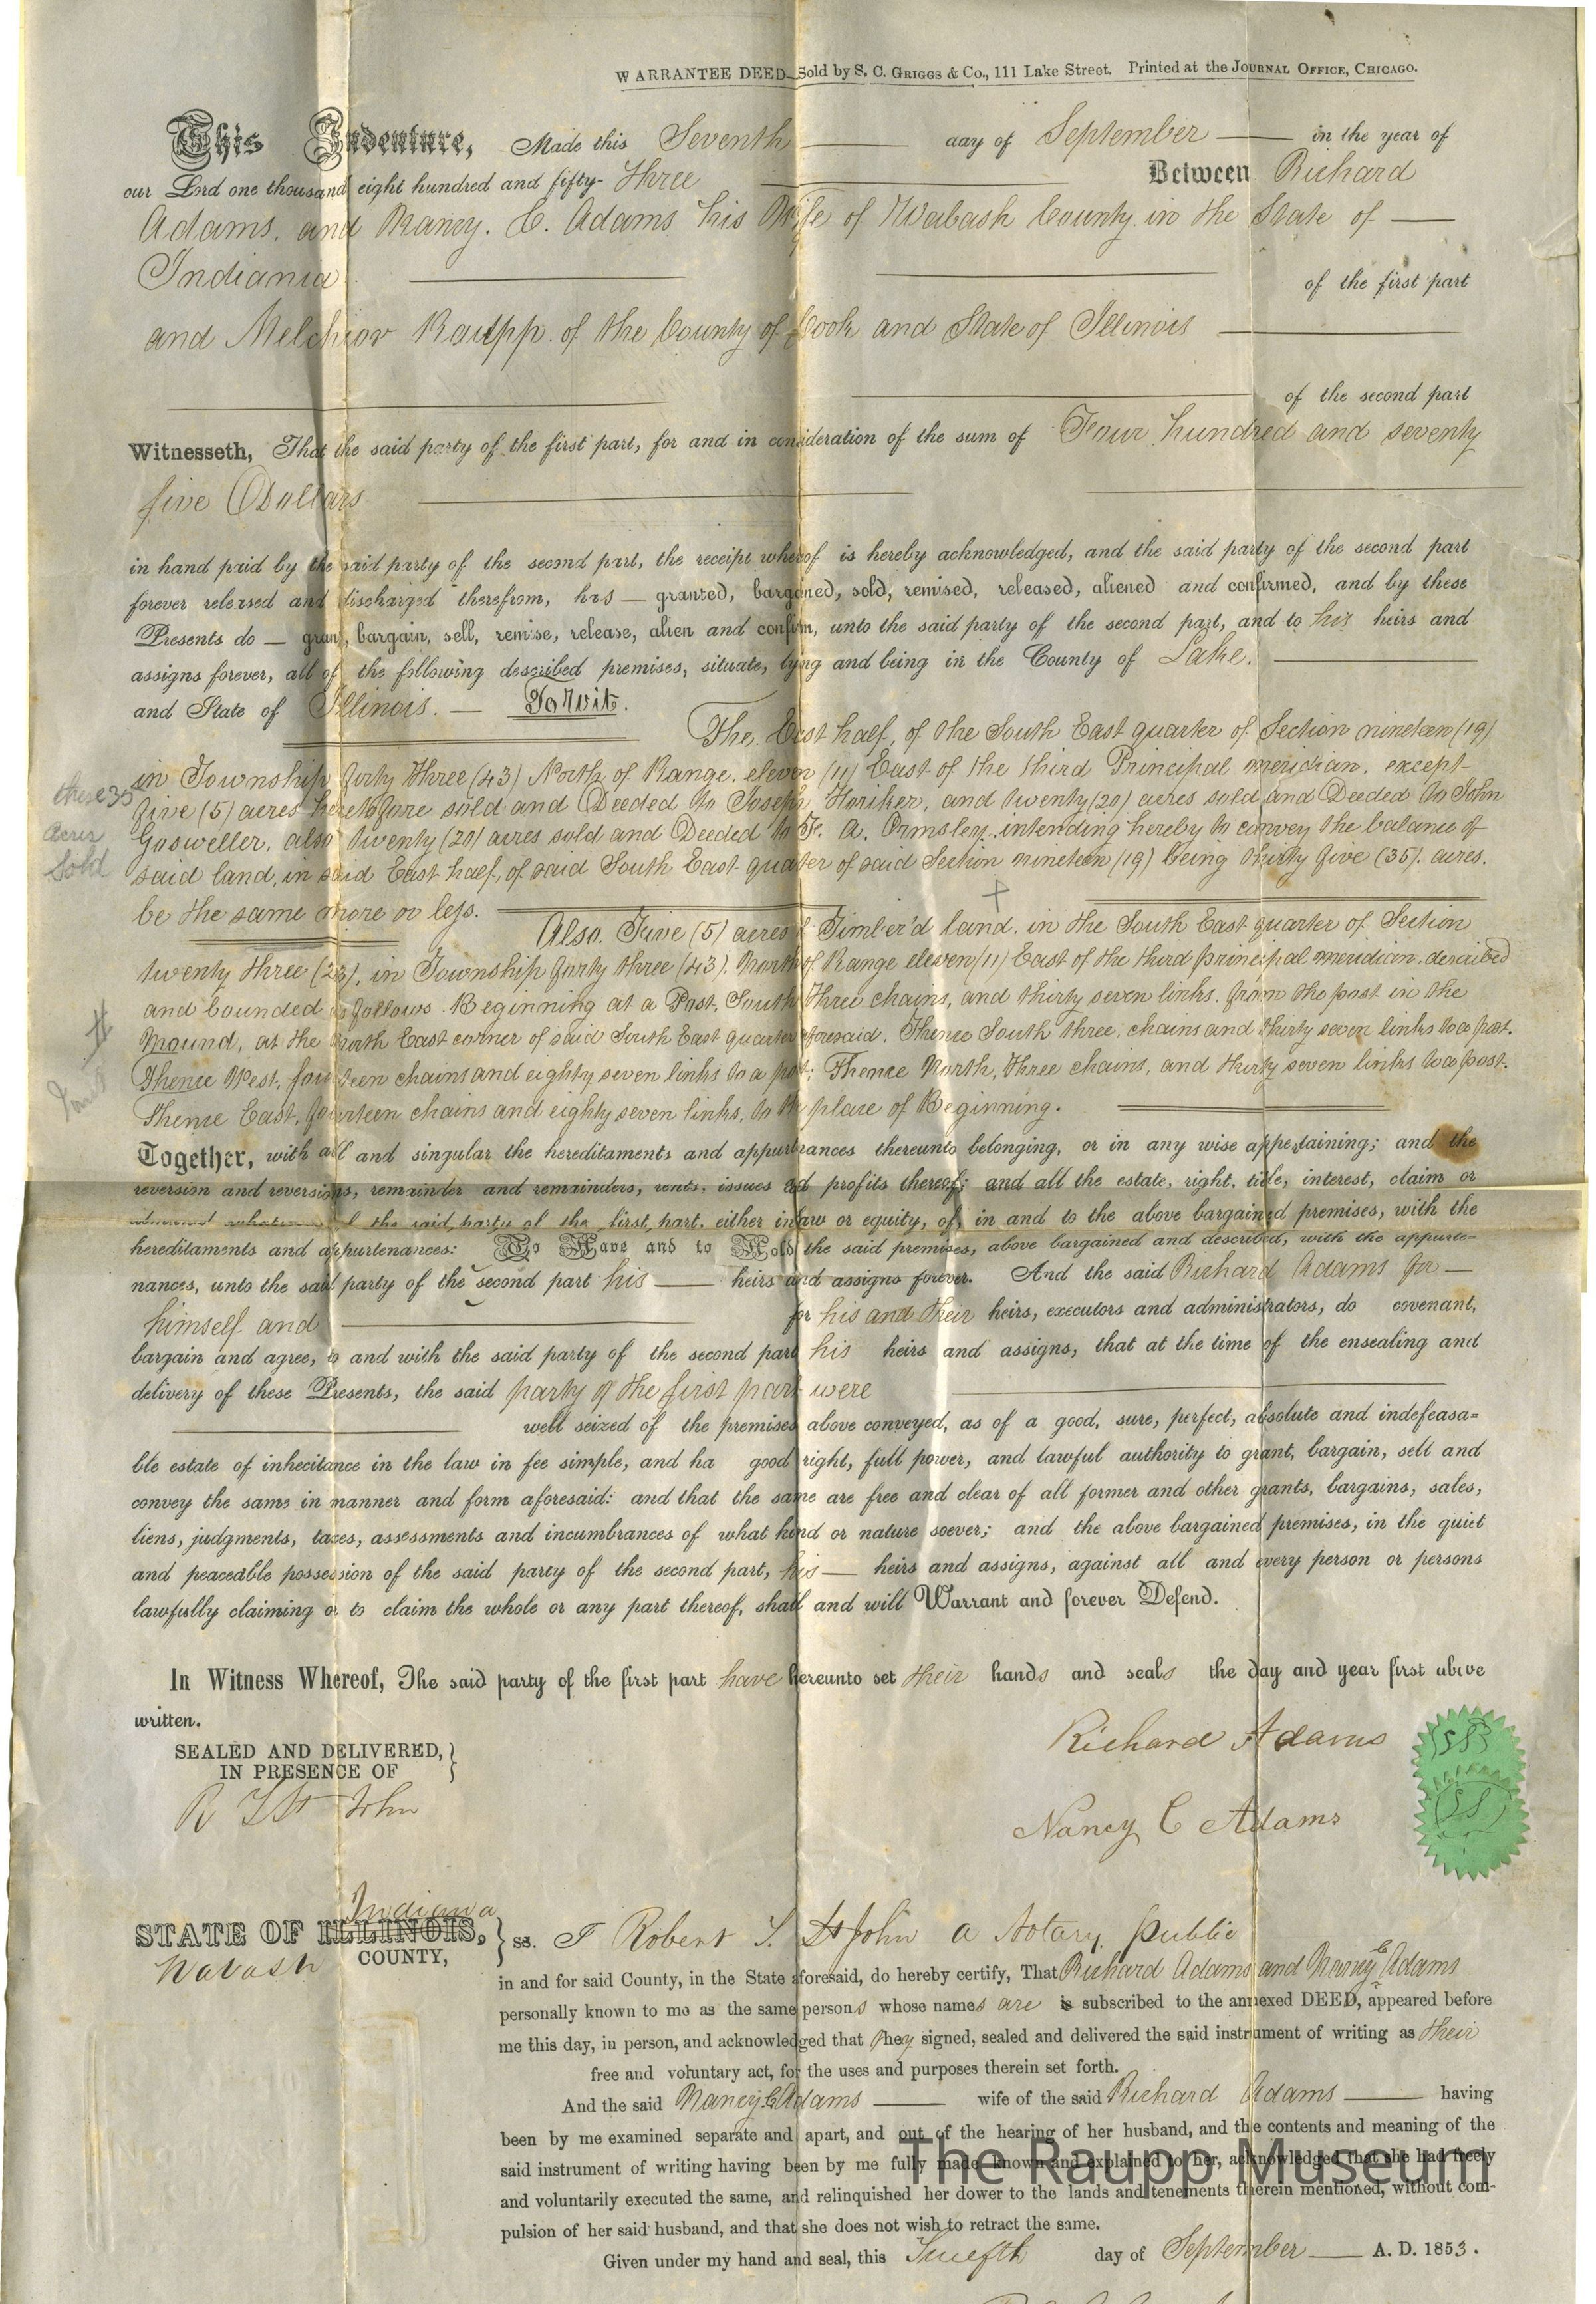 WARRANTEE DEED—Sold by S. C. GRIGGS & Co., 111 Lake Street. Printed at the JOURNAL OFFICE, CHICAGO.
This Indenture, Made this Seventh day of September in the year of
our Lord one thousand eight hundred and fifty- Three Between Richard
Adams, and Nancy. C. Adams his Wife of Wabash County in the State of
Indiania of the first part
and Melchior Raupp. of the County of Cook and State of Illinois
of the second part
Witnesseth, That the said party of the first part, for and in consideration of the sum of Four hundred and seventy
five Dollars
in hand paid by the said party of the second part, the receipt whereof is hereby acknowledged, and the said party of the second part
forever released and discharged therefrom, has — granted, bargained, sold, remised, released, aliened and confirmed, and by these
Presents do — grant, bargain, sell, remise, release, alien and confirm, unto the said party of the second part, and to his heirs and
assigns forever, all of the following described premises, situate, lying and being in the County of Lake.
and State of Illinois. — To Wit.
The East half, of the South East quarter of Section nineteen (19)
in Township forty three (43) North of Range. eleven (11) East of the third Principal meridian. except
five (5) acres heretofore sold and Deeded to Joseph Horiker, and twenty (20) acres sold and Deeded to John
Gosweller, also twenty (20) acres sold and Deeded to F. A. Ormsley. intending hereby to convey the balance of
said land, in said East half, of said South East quarter of said Section nineteen (19) being thirty five (35). acres.
these 35
acres
Sold
be the same more or less.
Also. Five (5) acres of Timber'd land. in the South East quarter of Section
twenty three (23). in Township forty three (43). North of Range eleven (11) East of the third principal meridian. described
and bounded as follows. Beginning at a Post. South three chains, and thirty seven links. from the post in the
Mound, at the North East corner of said South East quarter aforesaid. Thence South three. chains and thirty seven links to a post.
Thence West, fourteen chains and eighty seven links to a post; Thence North, three chains, and thirty seven links to a post.
Thence East, fourteen chains and eighty seven links, to the place of Beginning.
Together, with all and singular the hereditaments and appurtenances thereunto belonging, or in any wise appertaining; and the
reversion and reversions, remainder and remainders, rents, issues and profits thereof; and all the estate, right, title, interest, claim or
the said party of the first part, either in law or equity, of, in and to the above bargained premises, with the
hereditaments and appurtenances: To Have and to Hold the said premises, above bargained and described, with the appurte-
nances, unto the said party of the second part his heirs and assigns forever. And the said Richard Adams for —
himself and for his and their heirs, executors and administrators, do covenant,
bargain and agree, to and with the said party of the second part his heirs and assigns, that at the time of the ensealing and
delivery of these Presents, the said party of the first part were
well seized of the premises above conveyed, as of a good, sure, perfect, absolute and indefeasa-
ble estate of inhecitance in the law in fee simple, and ha good right, full power, and lawful authority to grant, bargain, sell and
convey the same in manner and form aforesaid: and that the same are free and clear of all former and other grants, bargains, sales,
liens, judgments, taxes, assessments and incumbrances of what kind or nature soever; and the above bargained premises, in the quiet
and peaceable possession of the said party of the second part, his — heirs and assigns, against all and every person or persons
lawfully claiming or to claim the whole or any part thereof, shall and will Warrant and forever Defend.
In Witness Whereof, The said party of the first part have hereunto set their hands and seals the day and year first above
written.
SEALED AND DELIVERED,
IN PRESENCE OF
R T St John
Richard Adams
Nancy C Adams
Indiana
STATE OF ILLINOIS,
Wabash COUNTY,
ss. I Robert T. St John a Notary Public
in and for said County, in the State aforesaid, do hereby certify, That Richard Adams and Nancy C Adams
personally known to me as the same persons whose names are is subscribed to the annexed DEED, appeared before
me this day, in person, and acknowledged that they signed, sealed and delivered the said instrument of writing as their
free and voluntary act, for the uses and purposes therein set forth.
And the said Nancy C Adams wife of the said Richard Adams having
been by me examined separate and apart, and out of the hearing of her husband, and the contents and meaning of the
said instrument of writing having been by me fully made known and explained to her, acknowledged that she had freely
and voluntarily executed the same, and relinquished her dower to the lands and tenements therein mentioned, without com-
pulsion of her said husband, and that she does not wish to retract the same.
Given under my hand and seal, this Twefth day of September A. D. 1853.
The Raupp Museum